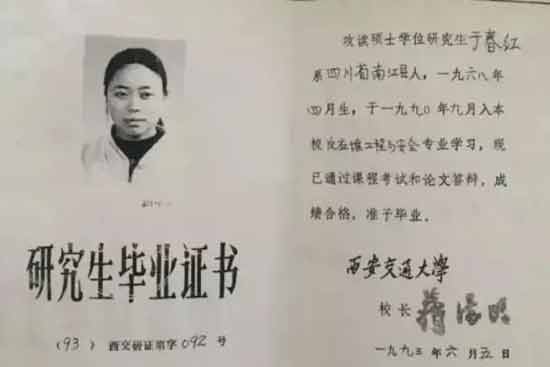 研究生毕业证书
(93) 西交研证第字 092 号
攻读硕士学位研究生于春红
系四川省南江县人,一九六八年
四月生,于一九九〇年九月入本
工程与安全专业学习,现
已通过课程考试和论文答辩,成
绩合格,准予毕业。
西安交通大学
校长 蒋德明
一九九三年六月五日